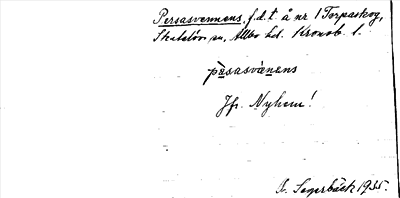 Persasvennens, f.d.t. å nr 1 Torpaskog,
Skatelöv sn, Allbo hd. Kronob. l.
pèsasvànens
Jfr. Nyhem!
R. Segerbäck 1935.